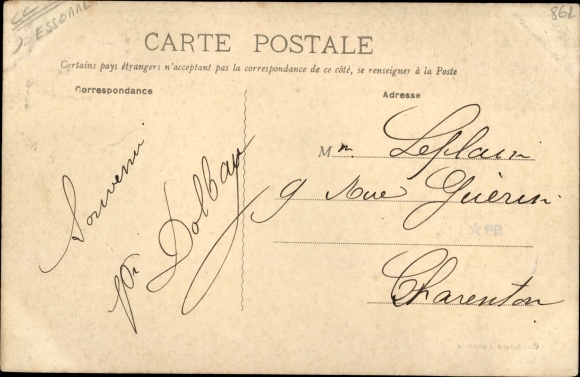 ESSONNE
862
CARTE POSTALE
Certains pays étrangers n'acceptant pas la correspondance de ce côté, se renseigner à la Poste
Correspondance
Adresse
Souvenir
Dolbau
Mr. Leplain
9 Rue Guérin
★PB
Charenton